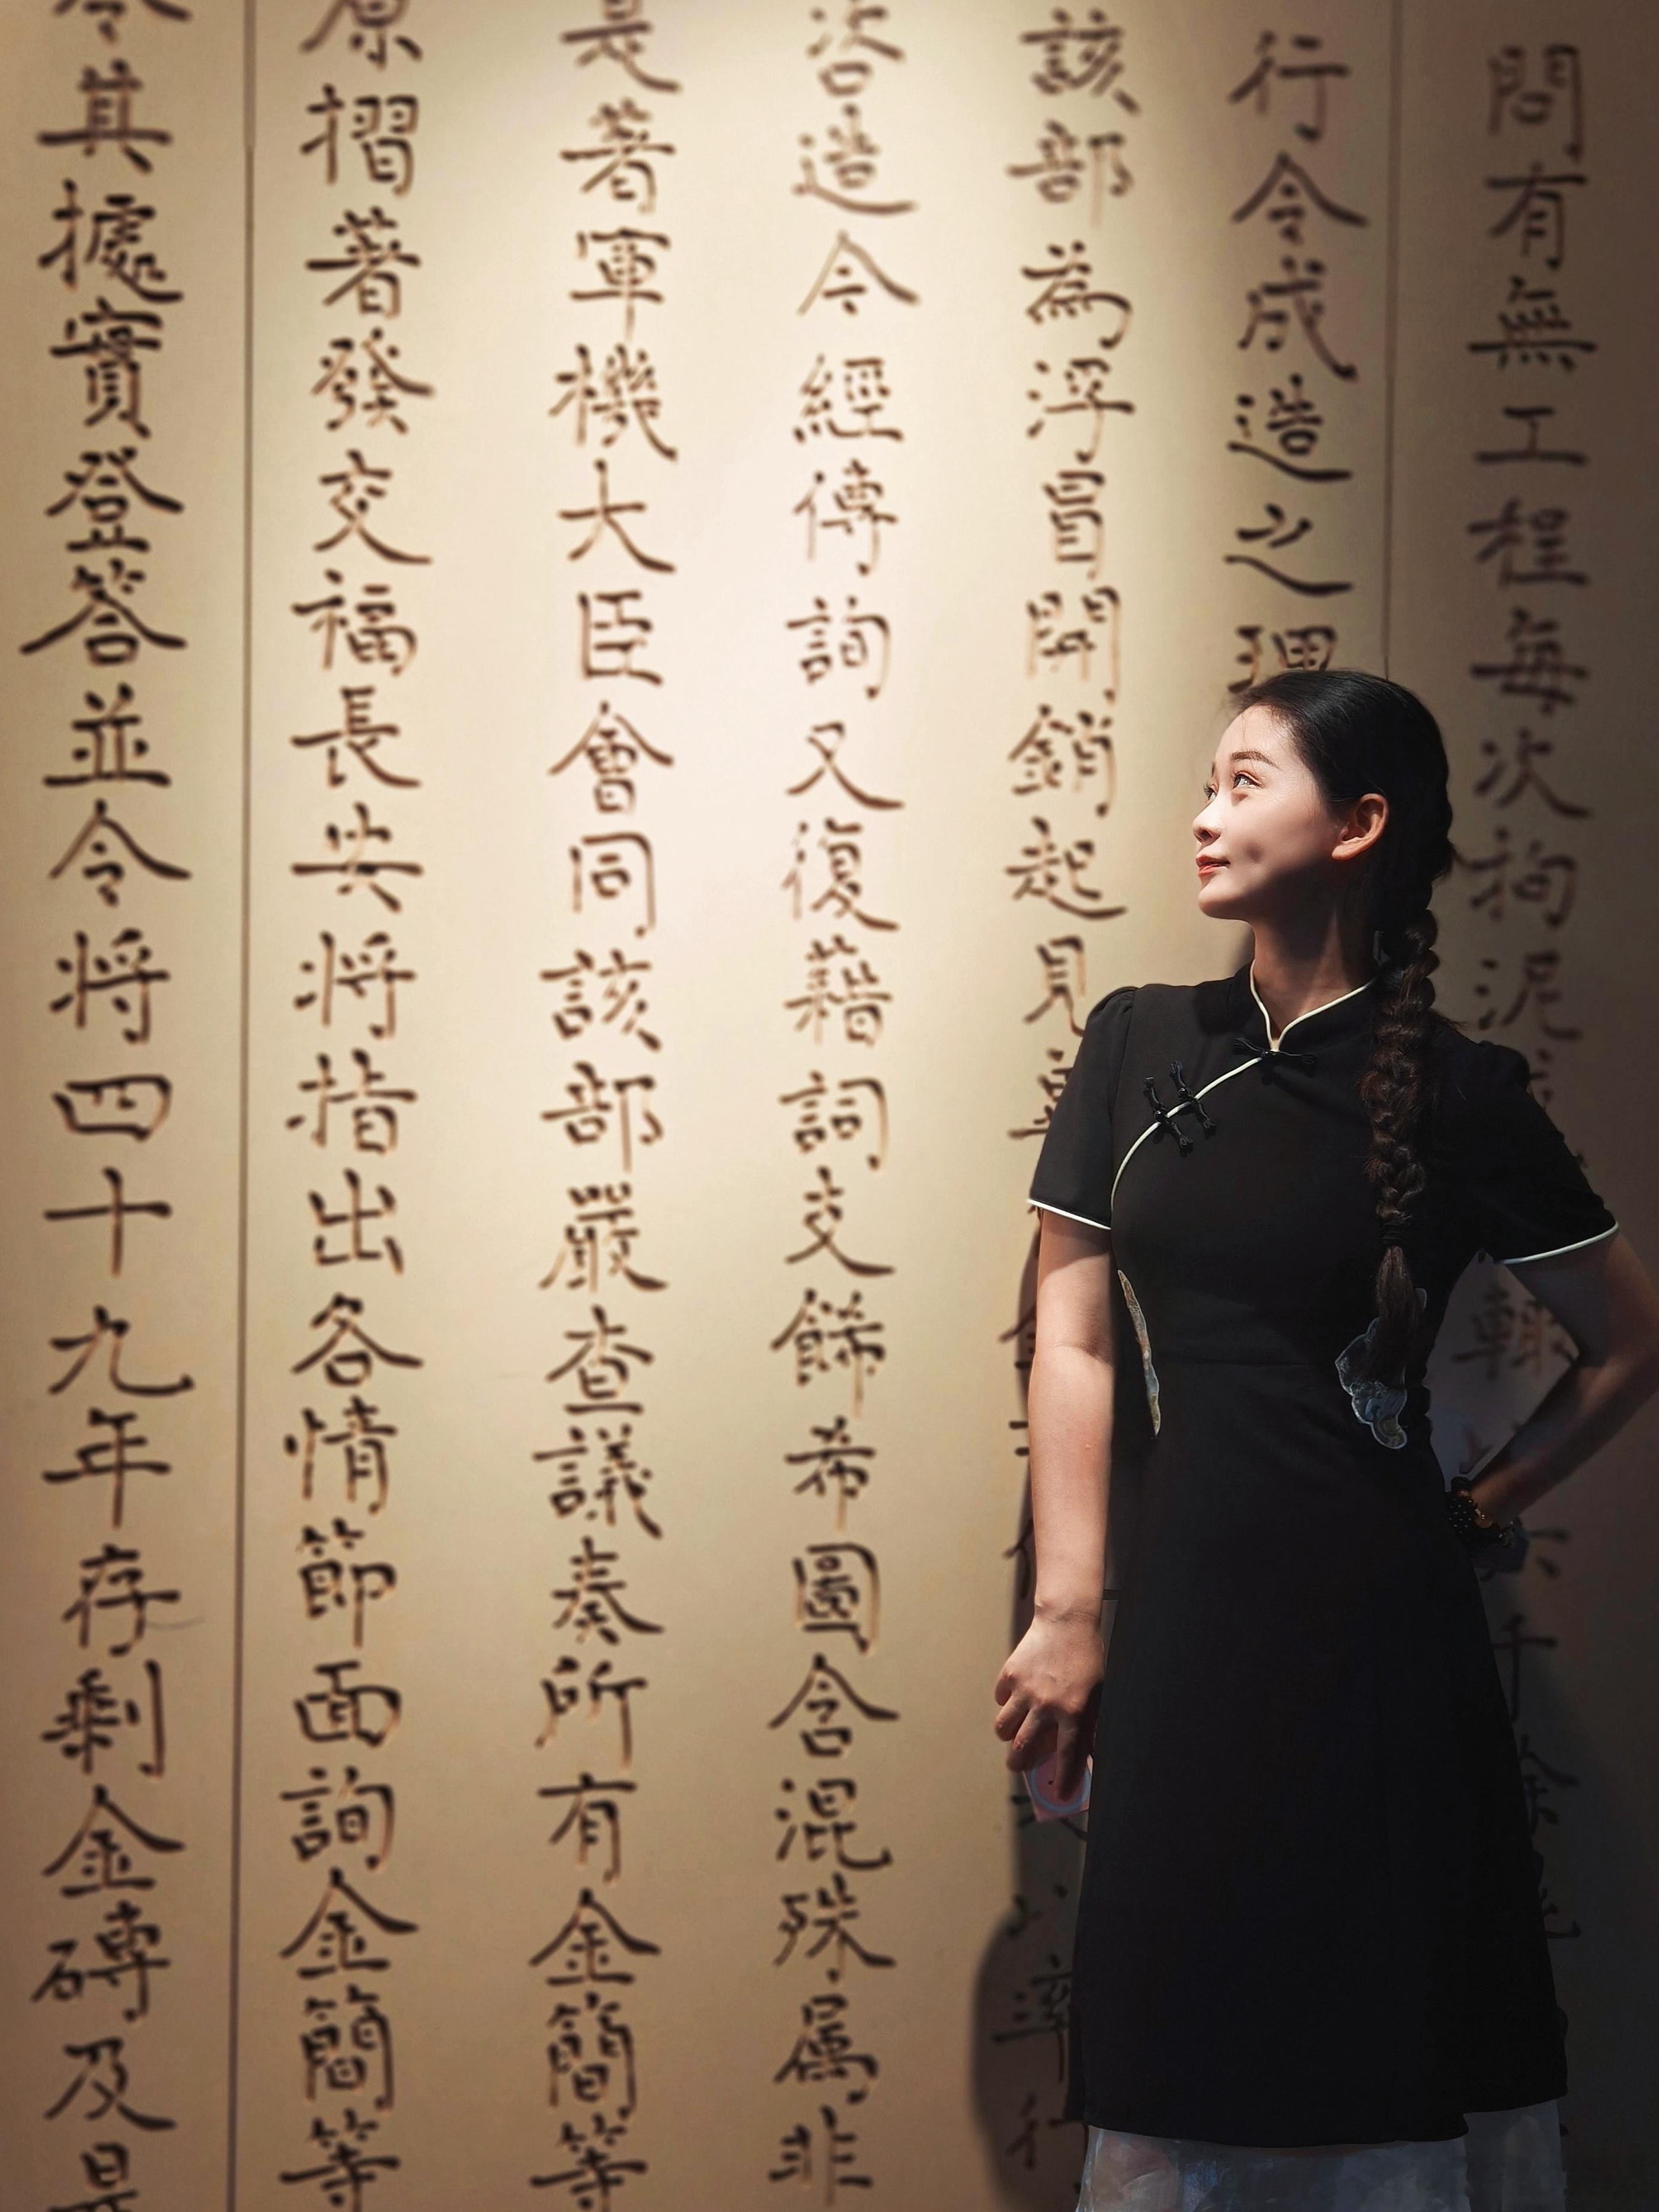 問有無工程每次拘泥
行令成造之理
該部為浮冒開銷起見
次咨造令經傳詢又復藉詞支餙希圖含混殊屬非
是著軍機大臣會同該部嚴查議奏所有金簡等
原摺著發交福長安將指出各情節面詢金簡等
令其據實登答並令將四十九年存剩金磚及